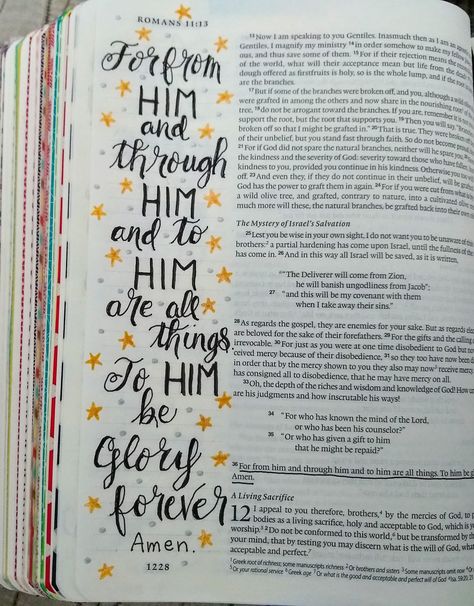 ROMANS 11:13
For from
HIM
and
through
HIM
and to
HIM
are all
things.
To HIM
be
Glory
forever
Amen.
1228
13Now I am speaking to you Gentiles. Inasmuch then as I am an
Gentiles, I magnify my ministry 14in order somehow to make my fellow
ous, and thus save some of them. 15For if their rejection means the
of the world, what will their acceptance mean but life from the dead
dough offered as firstfruits is holy, so is the whole lump, and if the root
are the branches.
17But if some of the branches were broken off, and you, although a wild
were grafted in among the others and now share in the nourishing root of
tree, 18do not be arrogant toward the branches. If you are, remember it is
support the root, but the root that supports you. 19Then you will say, "Bran
broken off so that I might be grafted in." 20That is true. They were broken
of their unbelief, but you stand fast through faith. So do not become proud
21For if God did not spare the natural branches, neither will he spare you
the kindness and the severity of God: severity toward those who have fallen
kindness to you, provided you continue in his kindness. Otherwise you too
off. 23And even they, if they do not continue in their unbelief, will be
God has the power to graft them in again. 24For if you were cut from what
a wild olive tree, and grafted, contrary to nature, into a cultivated olive
much more will these, the natural branches, be grafted back into their own
The Mystery of Israel's Salvation
25Lest you be wise in your own sight, I do not want you to be unaware of
brothers:2 a partial hardening has come upon Israel, until the fullness of the
has come in. 26And in this way all Israel will be saved, as it is written,
"The Deliverer will come from Zion,
he will banish ungodliness from Jacob";
27 "and this will be my covenant with them
when I take away their sins."
28As regards the gospel, they are enemies for your sake. But as regards elec
are beloved for the sake of their forefathers. 29For the gifts and the calling
irrevocable. 30For just as you were at one time disobedient to God but
ceived mercy because of their disobedience, 31so they too have now been
in order that by the mercy shown to you they also may now3 receive mercy
has consigned all to disobedience, that he may have mercy on all.
33Oh, the depth of the riches and wisdom and knowledge of God! How
are his judgments and how inscrutable his ways!
34 "For who has known the mind of the Lord,
or who has been his counselor?"
35 "Or who has given a gift to him
that he might be repaid?"
36For from him and through him and to him are all things. To him be
Amen.
A Living Sacrifice
12 I appeal to you therefore, brothers,4 by the mercies of God, to
bodies as a living sacrifice, holy and acceptable to God, which is
worship.5 2Do not be conformed to this world,6 but be transformed by the
your mind, that by testing you may discern what is the will of God, what
acceptable and perfect.7
1Greek root of richness; some manuscripts richness 2Or brothers and sisters 3Some manuscripts omit now 4Or
5Or your rational service 6Greek age 7Or what is the good and acceptable and perfect will of God